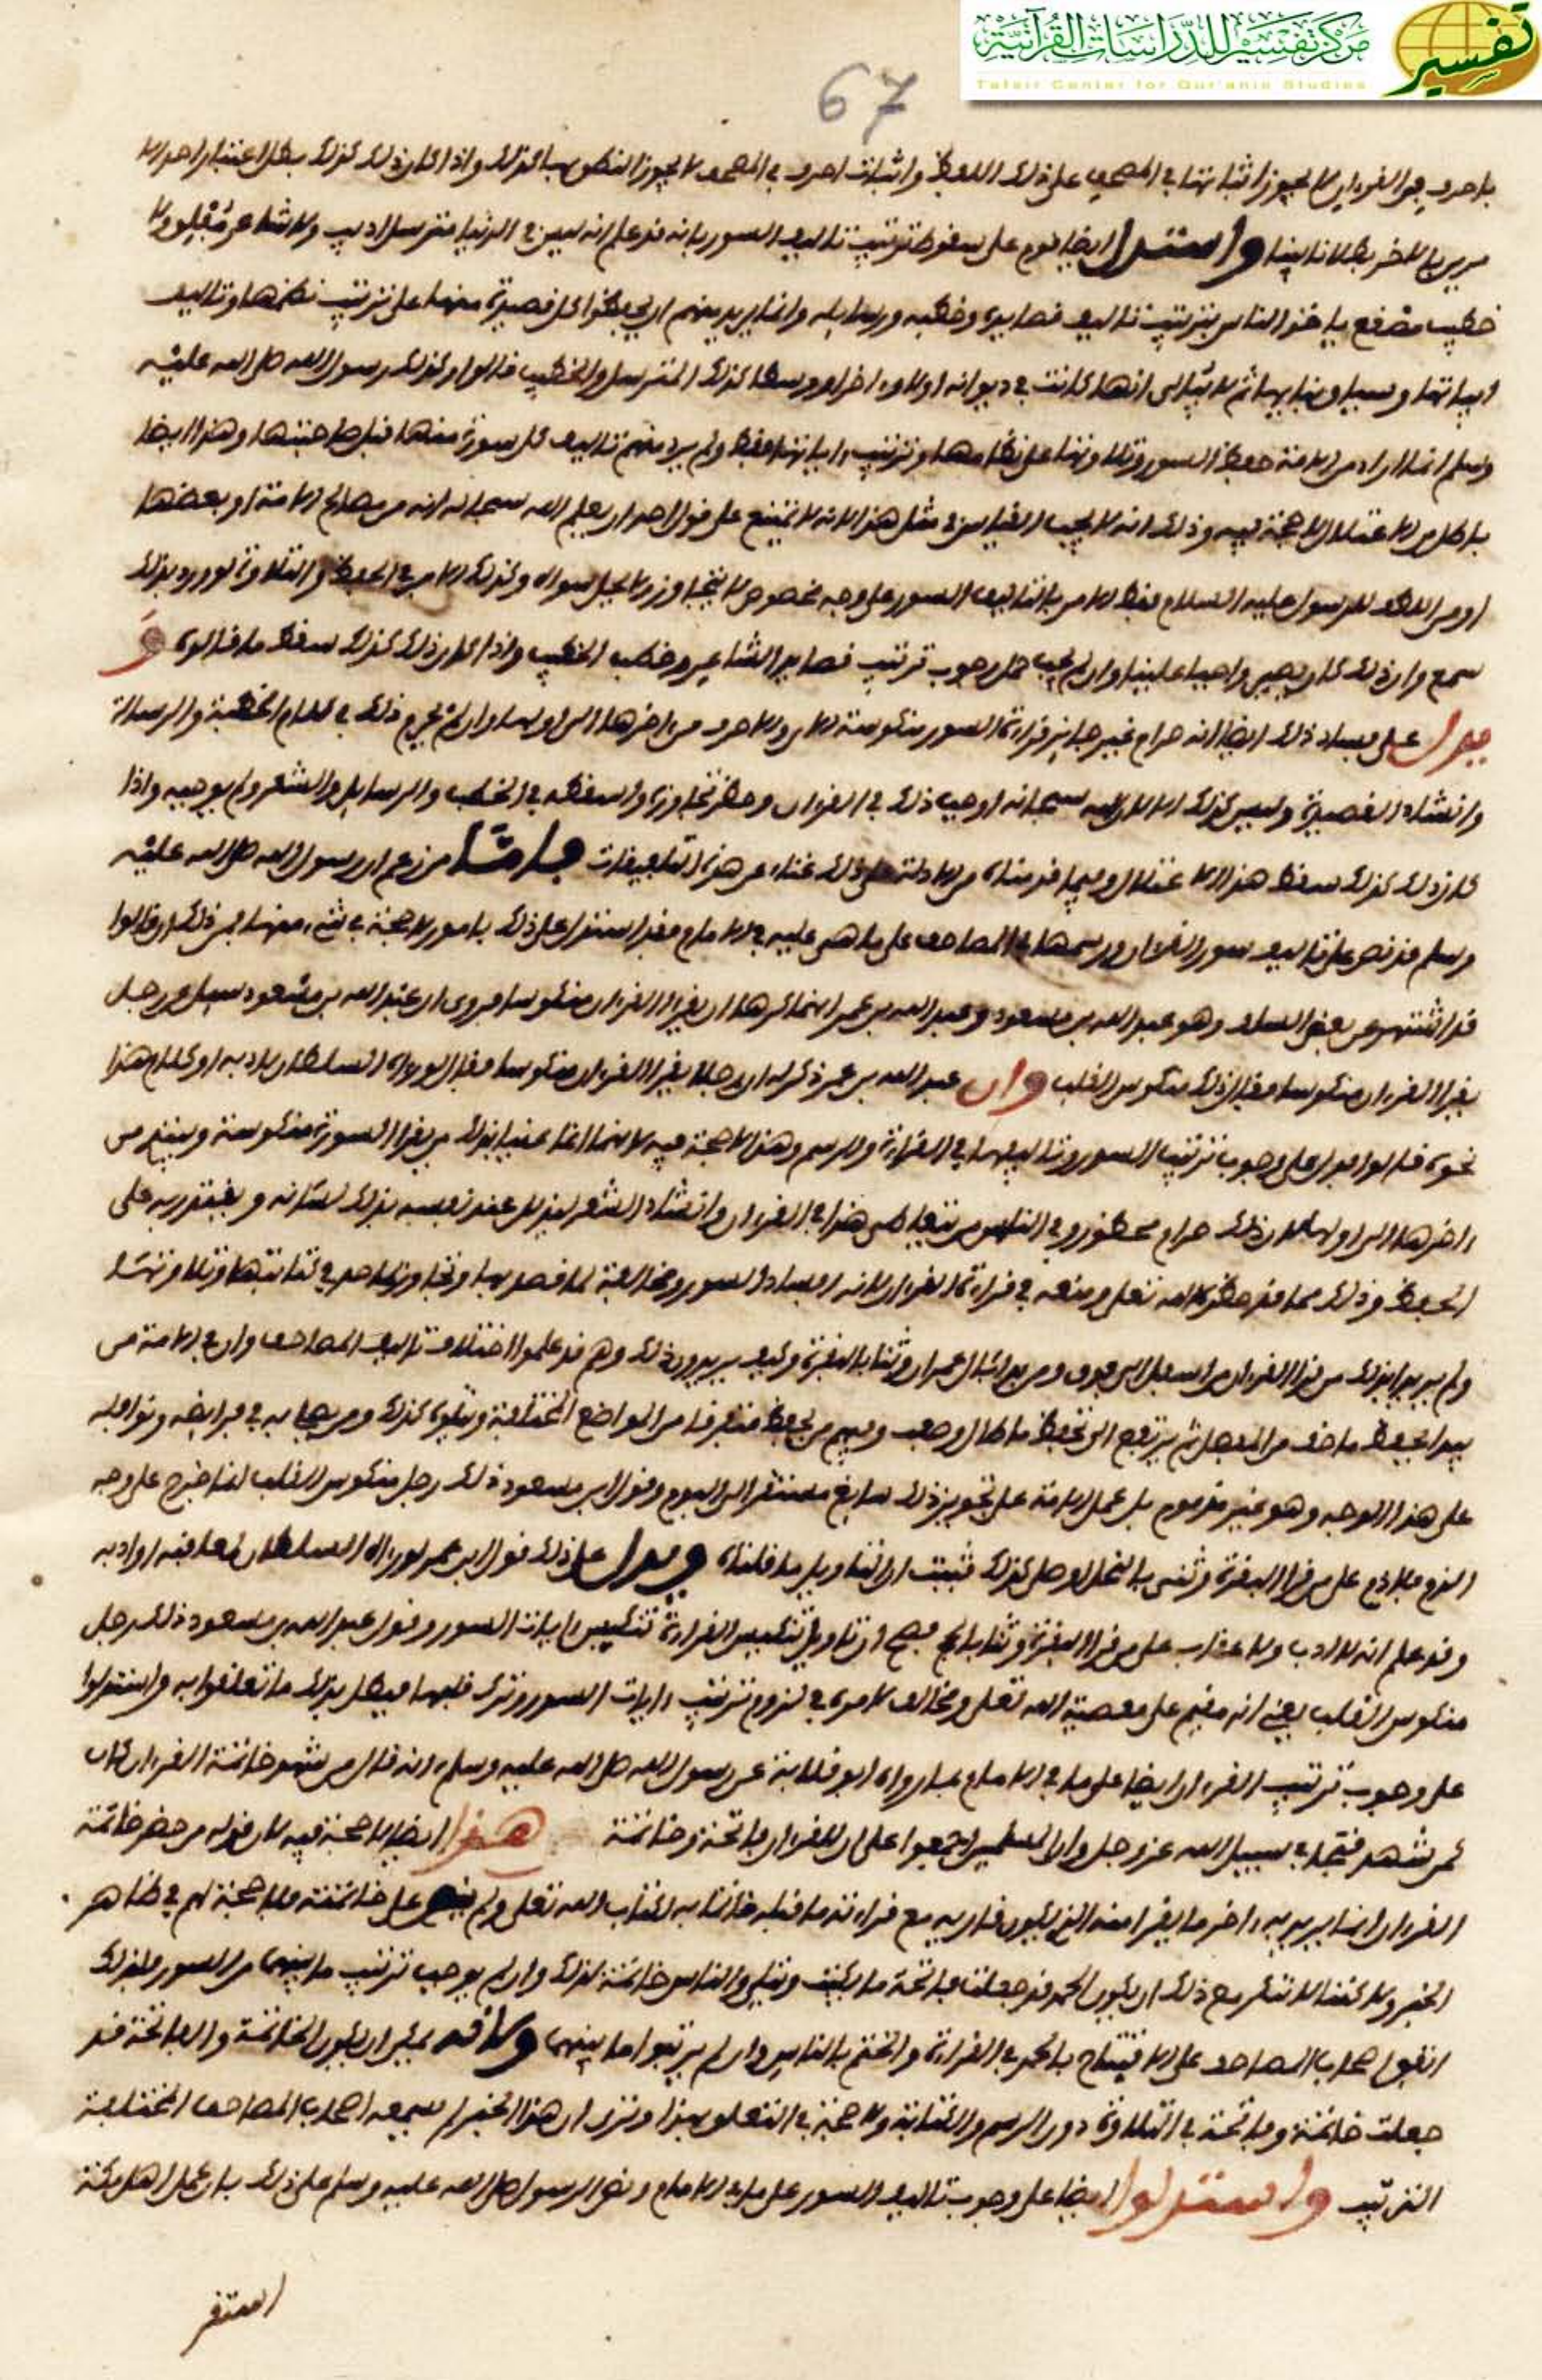 مركز تفسير للدراسات القرآنية
تفسير
Tafsir Center for Qur'anic Studies
67
باحرف من القرءان لا يجوز اثباتها في المصحف على ذلك اللفظ واثبات احرف في المصحف لا يجوز النطق بها كذلك واذا كان ذلك كذلك بطل اعتبار احد الا
مرين بالاخر بطلانا بينا واستدل ايضا قوم على سقوط ترتيب تاليف السور بانه قد علم انه ليس في الدنيا مترسل اديب ولا شاعر مفلق ولا
خطيب مصقع ياخذ الناس بترتيب تاليف قصايده وخطبه ورسايله وانما يريد منهم ان يحفظوا كل قصيدة منها على ترتيب نظمها وتاليف
ابياتها وسياقها ثم لا يبالى انها كانت في ديوانه اولا او اخرا او وسطا كذلك المترسل والخطيب قالوا وكذلك رسول الله صلى الله عليه
وسلم انما اراد من الامة حفظ السور وتلاوتها على نظامها وترتيب ءاياتها فقط ولم يرد منهم تاليف كل سورة منها قبل صاحبتها وهذا ايضا
باطل من الاعتلال لا حجة فيه وذلك انه لا يجب القياس في مثل هذا لانه لا يمتنع على قول احد ان يعلم الله سبحانه انه من مصالح الامة او بعضها
او من اللطف للرسول عليه السلام فقط الامر بالتاليف السور على وجه مخصوص لا يتجاوز ولا يحل سواه وكذلك الامر في الحفظ والتلاوة لو ورد بذلك
سمع وان ذلك كان يصير واجبا علينا وان لم يجب مثل وجوب ترتيب قصايد الشاعر وخطب الخطيب واذا كان ذلك كذلك سقط ما قالوه و
يدل على فساد ذلك ايضا انه حرام غير جايز قراءة السور منكوسة الاي والاحرف من ءاخرها الى اولها وان لم يحرم ذلك في كلام الخطبة والرسالة
وانشاد القصيدة وليس كذلك الا لان الله سبحانه اوجب ذلك في القرءان وحظر تجاوزه واسقطه في الخطب والرسايل والشعر ولم يوجبه واذا
كان ذلك كذلك سقط هذا الاعتلال وفيما قدمناه من الادلة على ذلك غناء عن هذه التلفيقات فاما من زعم ان رسول الله صلى الله عليه
وسلم قد نص على تاليف سور القرءان ورسمها في المصاحف على ما هي عليه في الامام فقد استدل على ذلك بامور لا حجة في شيء منها فمن ذلك ان قالوا
قد اشتهر عن بعض السلف وهو عبد الله بن مسعود وعبد الله بن عمر انهما كرها ان يقرا القرءان منكوسا فروى ان عبد الله بن مسعود سيل عن رجل
يقرا القرءان منكوسا فقال ذلك منكوس القلب وان عبد الله بن عمر ذكر له ان رجلا يقرا القرءان منكوسا فقال لو رءاه السلطان لادبه او كلام هذا
نحوه قالوا فدل على وجوب ترتيب السور وتاليفها في القراءة والرسم وهذا لا حجة فيه لانهما انما عنيا بذلك من يقرا السورة منكوسة ويبتدي من
ءاخرها الى اولها لان ذلك حرام محظور وفي الناس من يتعاطى هذا في القرءان وانشاد الشعر ليذلل عند نفسه بذلك لسانه ويقتدر به على
الحفظ وذلك مما قد حظره الله تعلى ومنعه في قراءة القرءان لانه افساد لسوره ومخالفة لما قصد بها وتجاوز لما حد في كتابتها وتلاوتها
ولم يريدا بذلك من قرا القرءان من اسفل الى فوق ومن بدا بئال عمران وثنا بالبقرة وكيف يريدون ذلك وهم قد علموا اختلاف تاليف المصاحف وان في الامة من
يبدا بحفظ ما خف من المفصل ثم يرتفع الى حفظ ما طال وصعب وفيهم من يحفظ متفرقا من المواضع المختلفة ويتلوه كذلك ومن يصلي به في فرايضه ونوافله
على هذا الوجه وهو غير مذموم بل عمل الامة على تجويز ذلك سايغ مستقر الى اليوم وقول ابن مسعود ذلك رجل منكوس القلب انما خرج على وجه
الذم فلا ذم على من قرا البقرة وثنى بالنحل او صلى كذلك فثبت ان التاويل ما قلناه ويدل على ذلك قول ابن عمر لو رءاه السلطان لعاقبه او ادبه
وقد علم انه لا ادب ولا عقاب على من قرا البقرة وثنا بالحج فصح ان تاويل تنكيس القراءة تنكيس ءايات السور وقول عبد الله بن مسعود ذلك رجل
منكوس القلب يعني انه مقيم على معصية الله تعلى ومخالف لامره في لزوم ترتيب ءايات السور وترك قلبها فبطل بذلك ما تعلقوا به واستدلوا
على وجوب ترتيب القرءان ايضا على ما في الامام بما رواه ابو قلابة عن رسول الله صلى الله عليه وسلم انه قال من شهد خاتمة القرءان كان
كمن شهد فتحا في سبيل الله عز وجل وان المسلمين اجمعوا على ان للقرءان فاتحة وخاتمة هذا ايضا لا حجة فيه لان قوله من حضر خاتمة
القرءان انما يريد به ءاخر ما يقرا منه الذي يكون قاريه مع قراءته ما قبله خاتما به لكتاب الله تعلى ولم ينص على خاتمته فلا حجة لهم في ظاهر
الخبر ولا كنا لا ننكر مع ذلك ان يكون الحمد قد جعلت فاتحة ما يكتب ويتلى والناس خاتمة لذلك وان لم يوجب ترتيب ما بينهما من السور ولذلك
اتفق اصحاب المصاحف على الافتتاح بالحمد في القراءة والختم بالناس وان لم يرتبوا ما بينهما ولانه يمكن ان يكون الخاتمة والفاتحة قد
جعلت خاتمة وفاتحة في التلاوة دون الرسم والكتابة ولا حجة في التعلق بهذا وترى ان هذا الخبر لم يسمعه اصحاب المصاحف المختلفة
الترتيب واستدلوا ايضا على وجوب تاليف السور على ما في الامام ونص الرسول صلى الله عليه وسلم على ذلك بان عمل اهل مكة